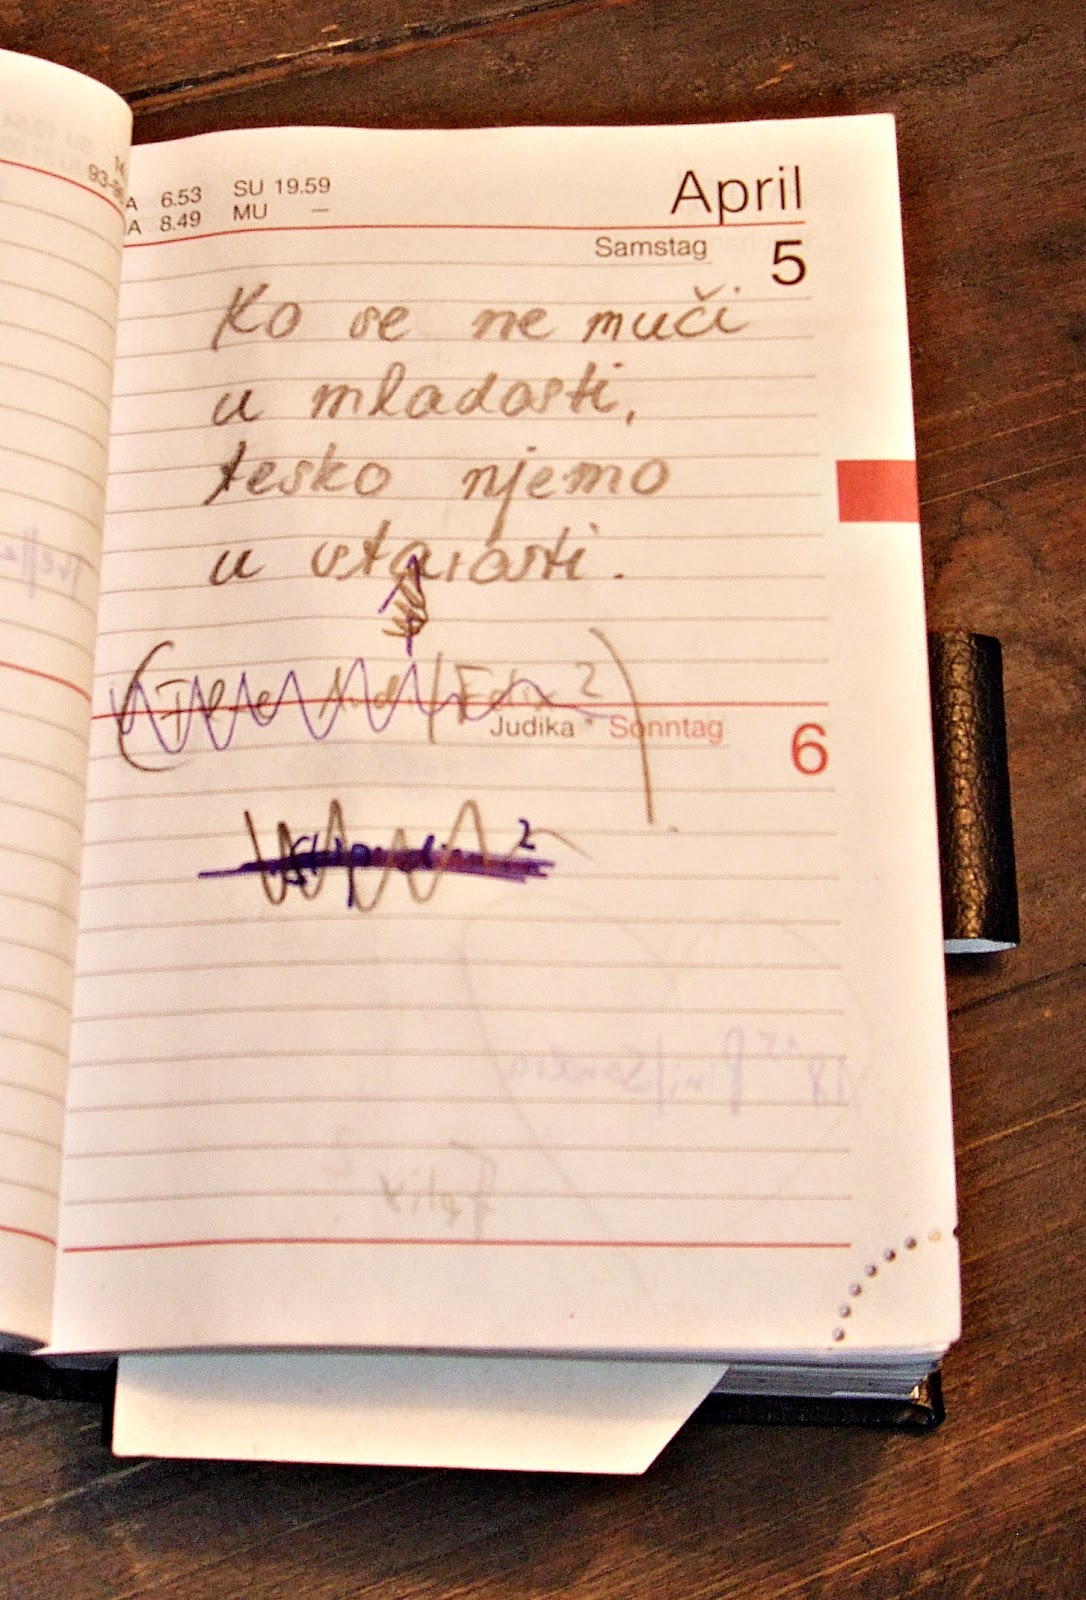 6.53 SU 19.59
8.49 MU —
April
Samstag 5
Ko se ne muči
u mladosti,
tesko njemo
u starosti.
Felix 2
Judika Sonntag
6
2